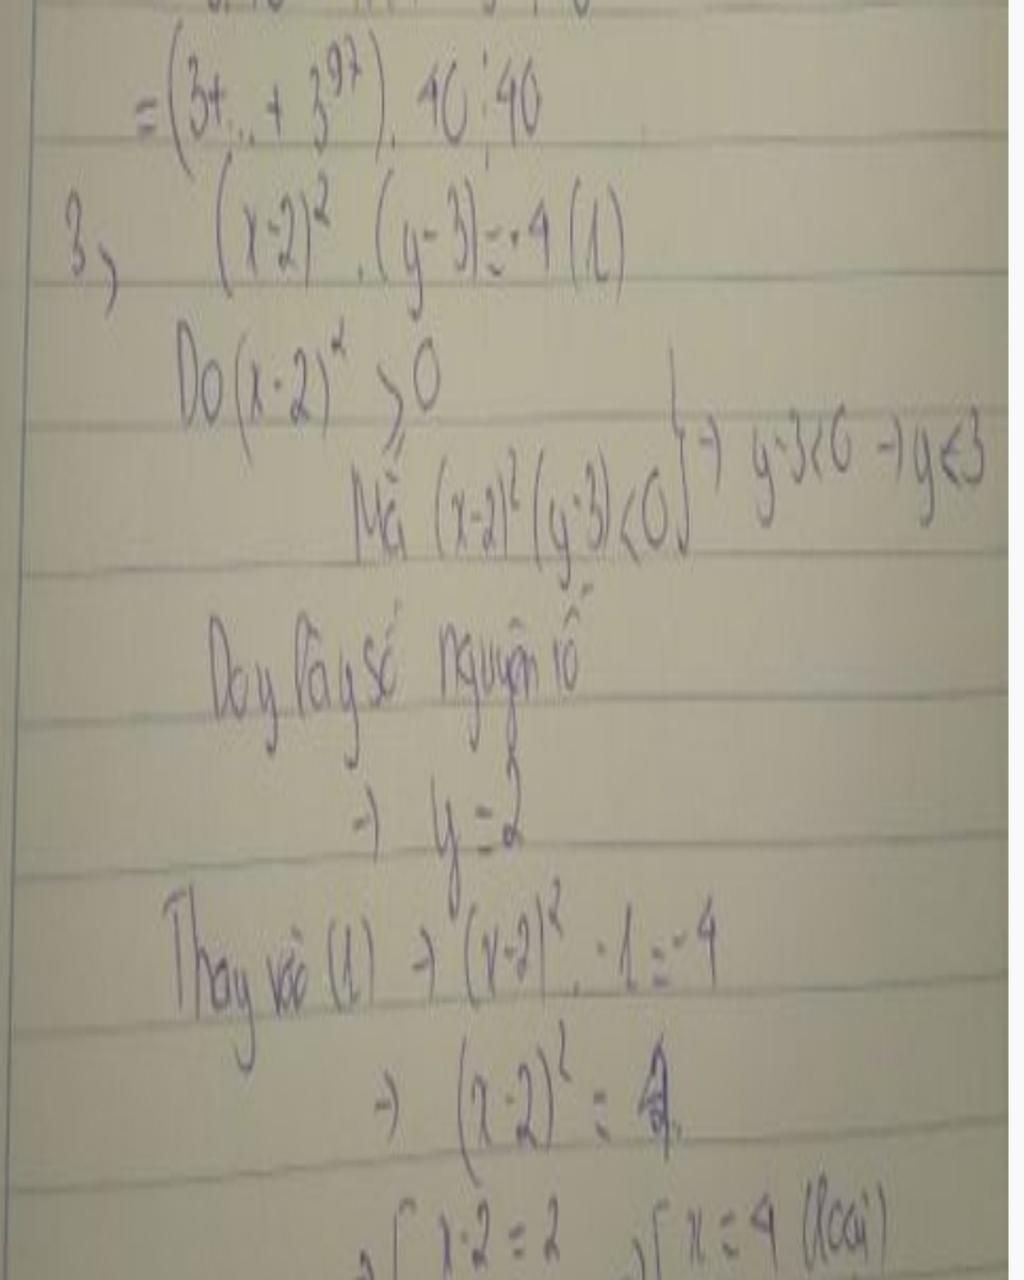 = (3+...+ 3^97). 40 ⋮ 40
3, (x-2)². (y-3) = -4 (1)
Do (x-2)² ≥ 0
Mà (x-2)² (y-3) < 0 } → y-3<0 → y<3
Do y là số nguyên tố
→ y = 2
Thay vào (1) → (x-2)². -1 = -4
→ (x-2)² = 4
→ [ x-2 = 2 → [ x = 4 (loại)